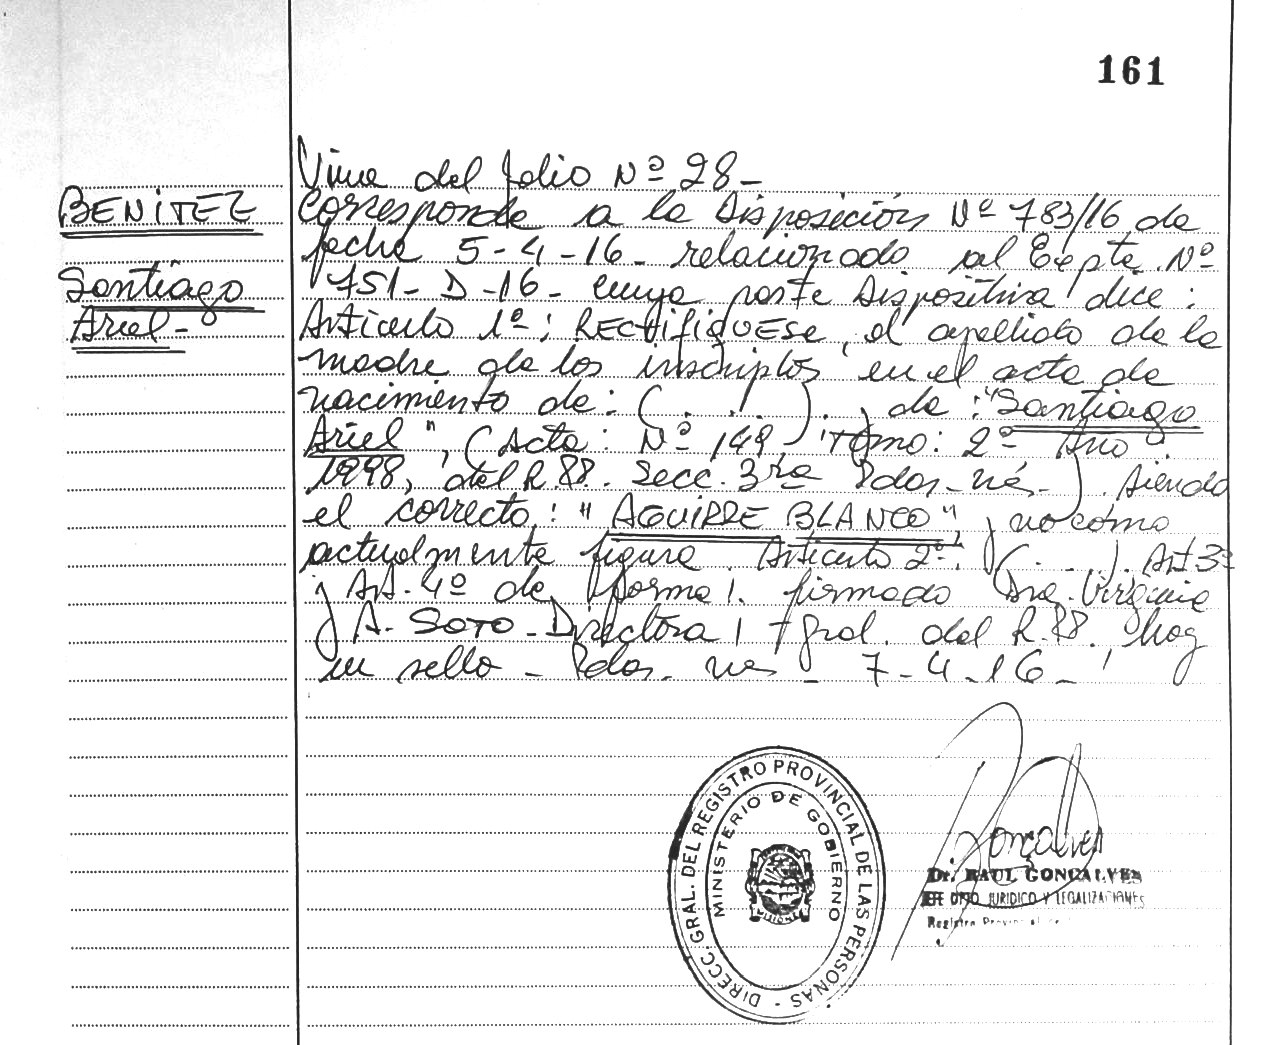 161
BENITEZ
Santiago
Ariel-
Viene del folio Nº 28-
Corresponde a la Disposición Nº 783/16 de
fecha 5-4-16- relacionado al Expte. Nº
751-D-16- cuya parte Dispositiva dice:
Artículo 1º: RECTIFIQUESE, el apellido de la
madre de los inscriptos en el acta de
nacimiento de: (. . . .)., de: "Santiago
Ariel", (Acta: Nº 149, Tomo: 2º Año
1998, del R.PP. Secc. 3ra Pdas-Mnes-). Siendo
el correcto: "AGUIRRE BLANCO", y no como
actualmente figura. Artículo 2º: (. . . .). Art 3º
y Art. 4º de forma. firmado Dra. Virginia
A. SOTO-Directora Gral. del R.PP. hay
un sello- Pdas. Mnes- 7-4-16-
DIRECC. GRAL. DEL REGISTRO PROVINCIAL DE LAS PERSONAS -
MINISTERIO DE GOBIERNO
MISIONES
Gonçalves
Dr. RAUL GONCALVES
JEFE DPTO JURIDICO Y LEGALIZACIONES
Registro Provincial de